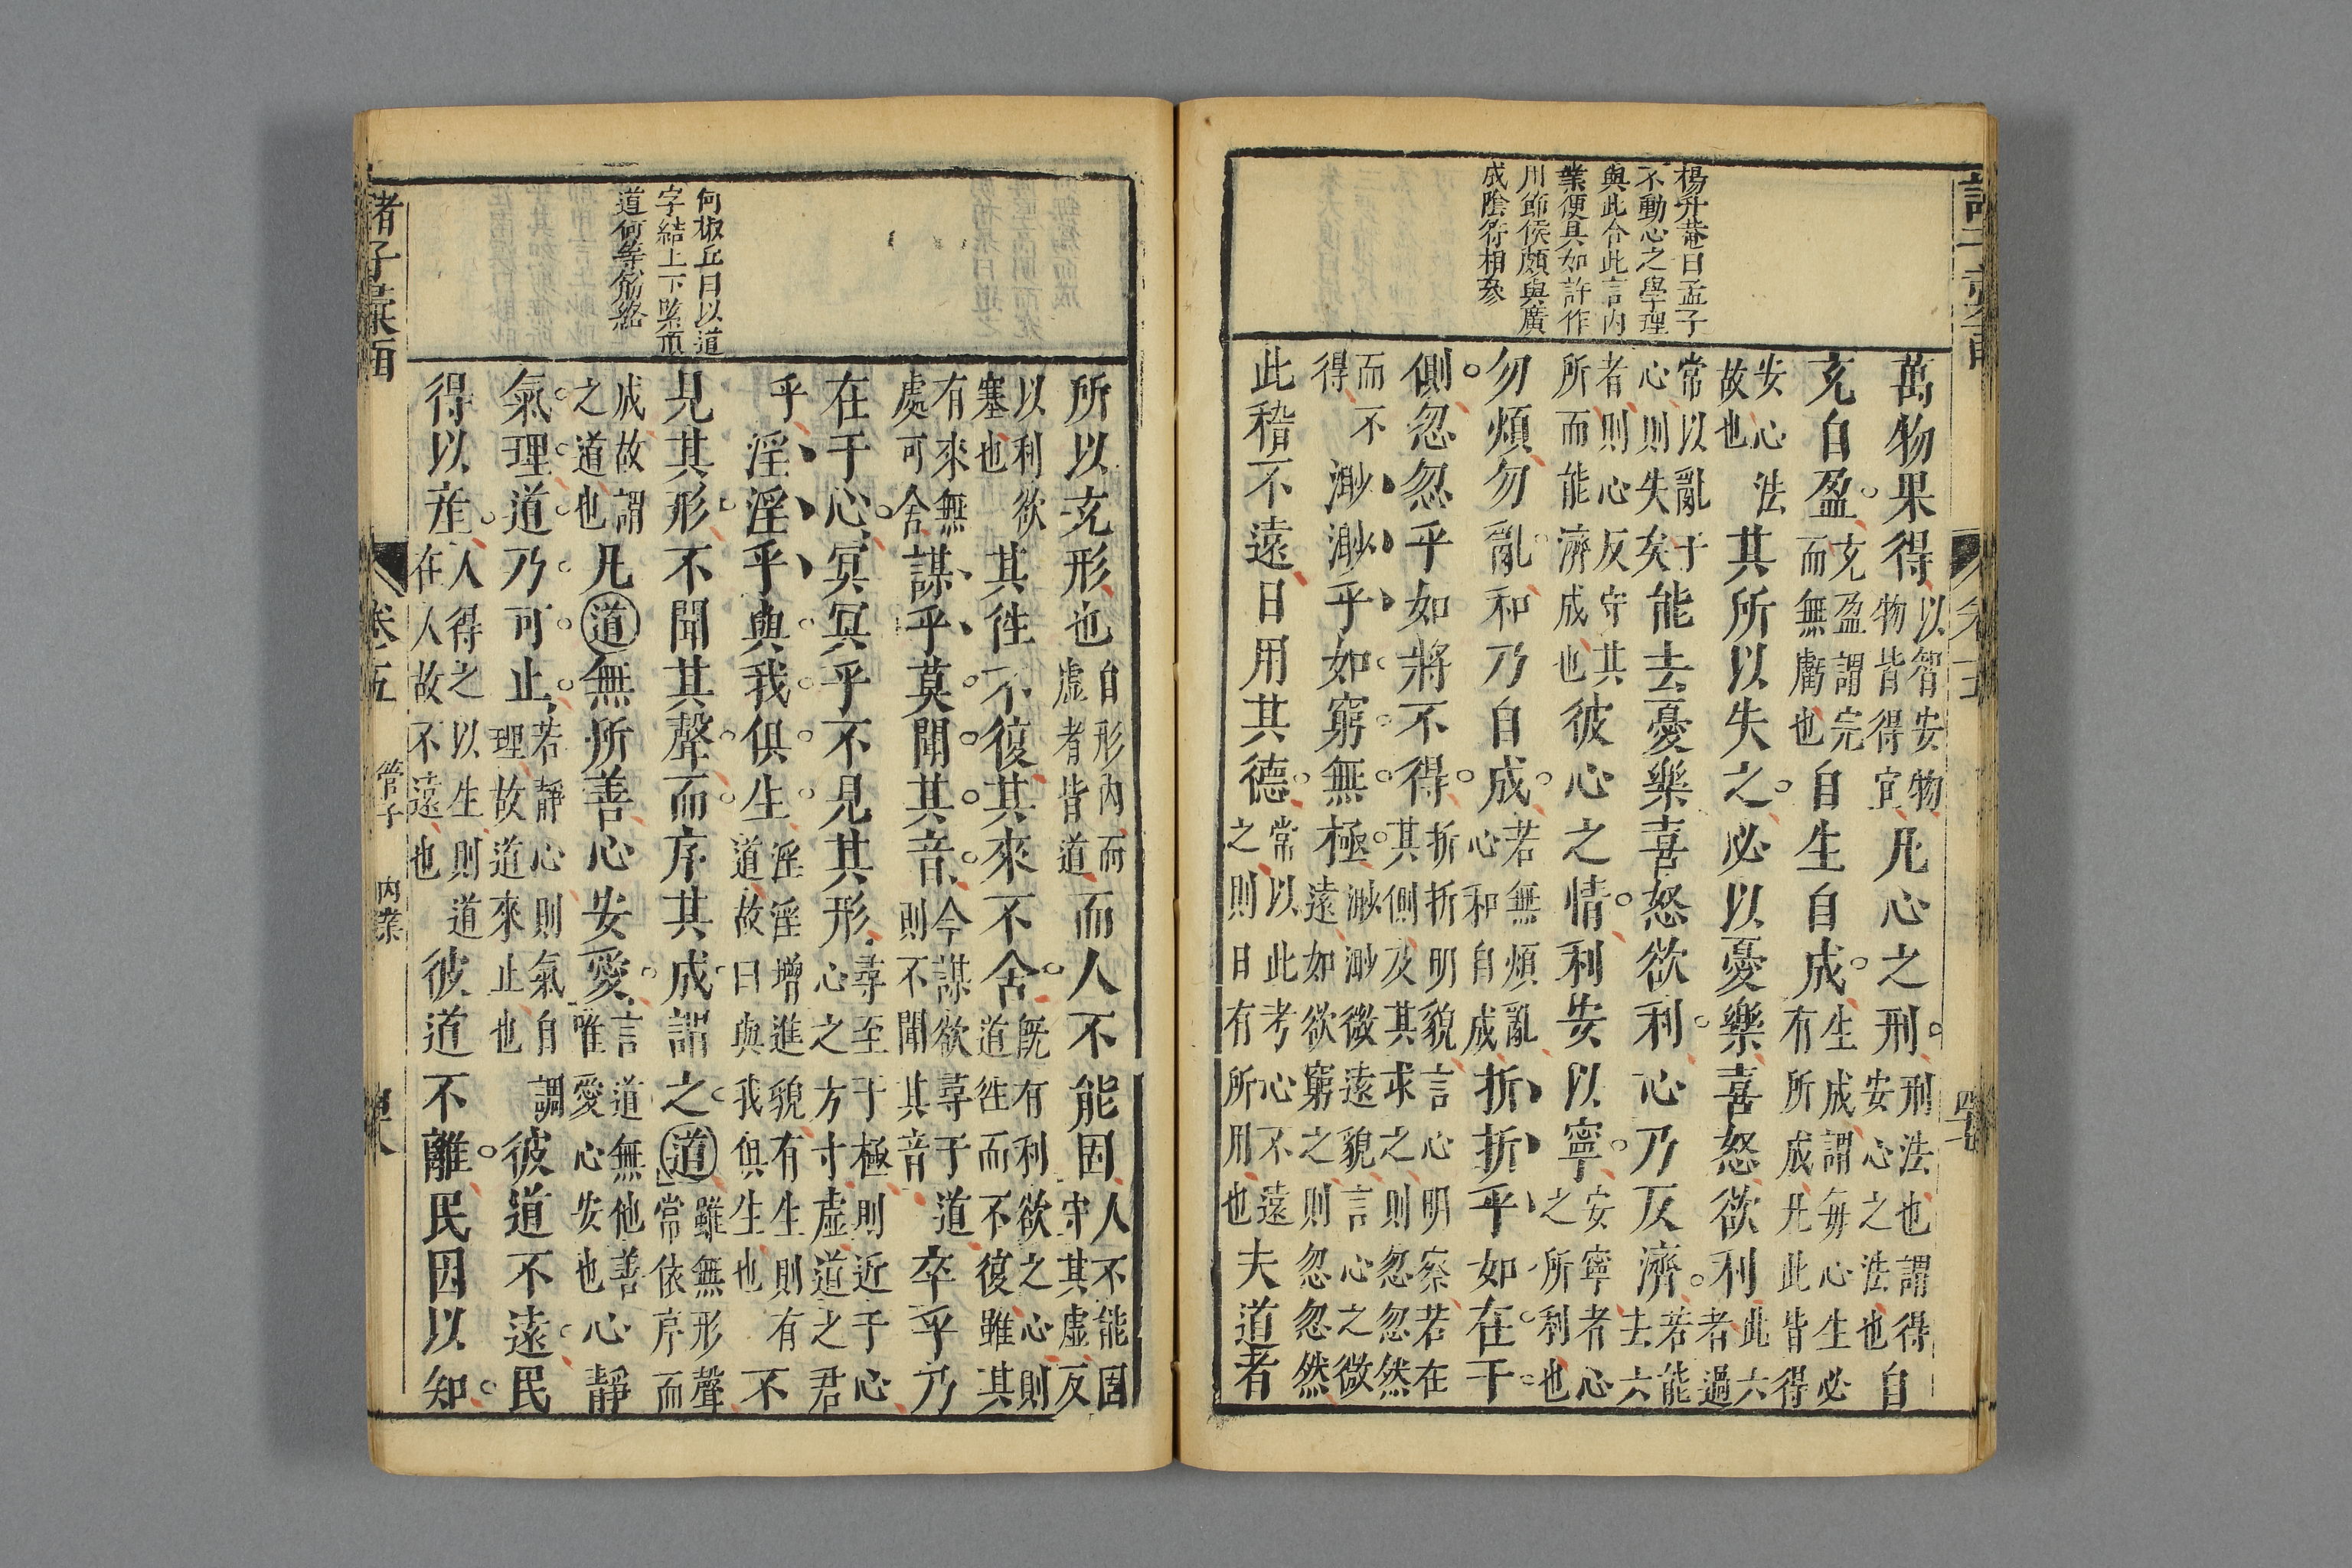 楊升菴曰孟子
不動心之學理
與此合此言內
業便具如許作
川節候頗與廣
成陰符相參
萬物果得以智安物物皆得宜凡心之刑刑法也謂得安心之法也自
充自盈充盈謂完而無虧也自生自成生成謂每心生必有所成凡此皆得
安心法故也其所以失之必以憂樂喜怒欲利此六者過
常以亂于心則失矣能去憂樂喜怒欲利心乃反濟若能去六
者則心反守其所而能濟成也彼心之情利安以寧安寧者心之所利也
勿煩勿亂和乃自成若無煩亂心和自成折折乎如在于
側忽忽乎如將不得折折明貌言心明察若在其側及其求之則忽忽然
而不得渺渺乎如窮無極渺渺微遠貌言心之微遠如欲窮之則忽忽然
此稽不遠日用其德常以此考心不遠之則日有所用也夫道者
何椒丘曰以道
字結上下
道何等筋絡
所以充形也自形內而虛者皆道而人不能固人不能固守其虛反
以利欲塞也其往不復其來不舍既有利欲之心則道往而不復雖其
有來無處可舍謀乎莫聞其音今謀欲尋于道則不聞其音卒乎乃
在于心冥冥乎不見其形尋至于極則近于心心之方寸虛道之君
乎淫淫乎與我俱生淫淫增進貌有生則有道故曰與我俱生也不
見其形不聞其聲而序其成謂之道雖無形聲常依序而
成故謂之道也凡道無所善心安愛言道無他善唯愛心安也心靜
氣理道乃可止若靜心則氣自調理故道來止也彼道不遠民
得以產人得之以生則道在人故不遠也彼道不離民因以知
諸子彙函 卷五 管子 內業